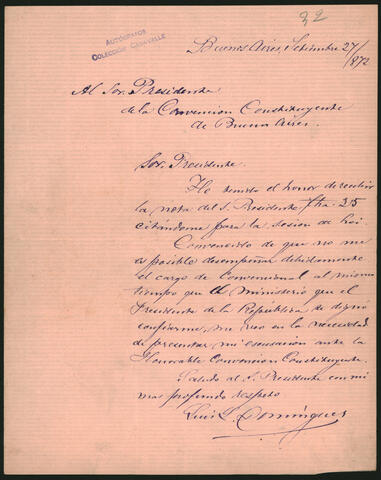 32
AUTÓGRAFOS
COLECCIÓN CASAVALLE
Buenos Aires, Setiembre 27/
872
Al Sor. Presidente
de la Convencion Constituyente
de Buenos Aires.
Sor. Presidente.
He tenido el honor de recibir
la nota del S. Presidente fha. 25
citándome para la sesion de hoi.
Convencido de que no me
es posible desempeñar debidamente
el cargo de Convencional al mismo
tiempo que el Ministerio que el
Presidente de la República se dignó
conferirme, me veo en la necesidad
de presentar mi escusacion ante la
Honorable Convencion Constituyente.
Saludo al S. Presidente con mi
mas profundo respeto
Luis L. Domínguez